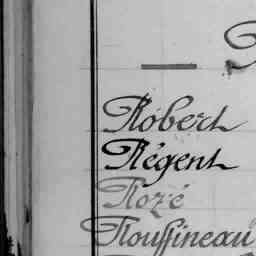 Robert
Régent
Rozé
Rouffineau